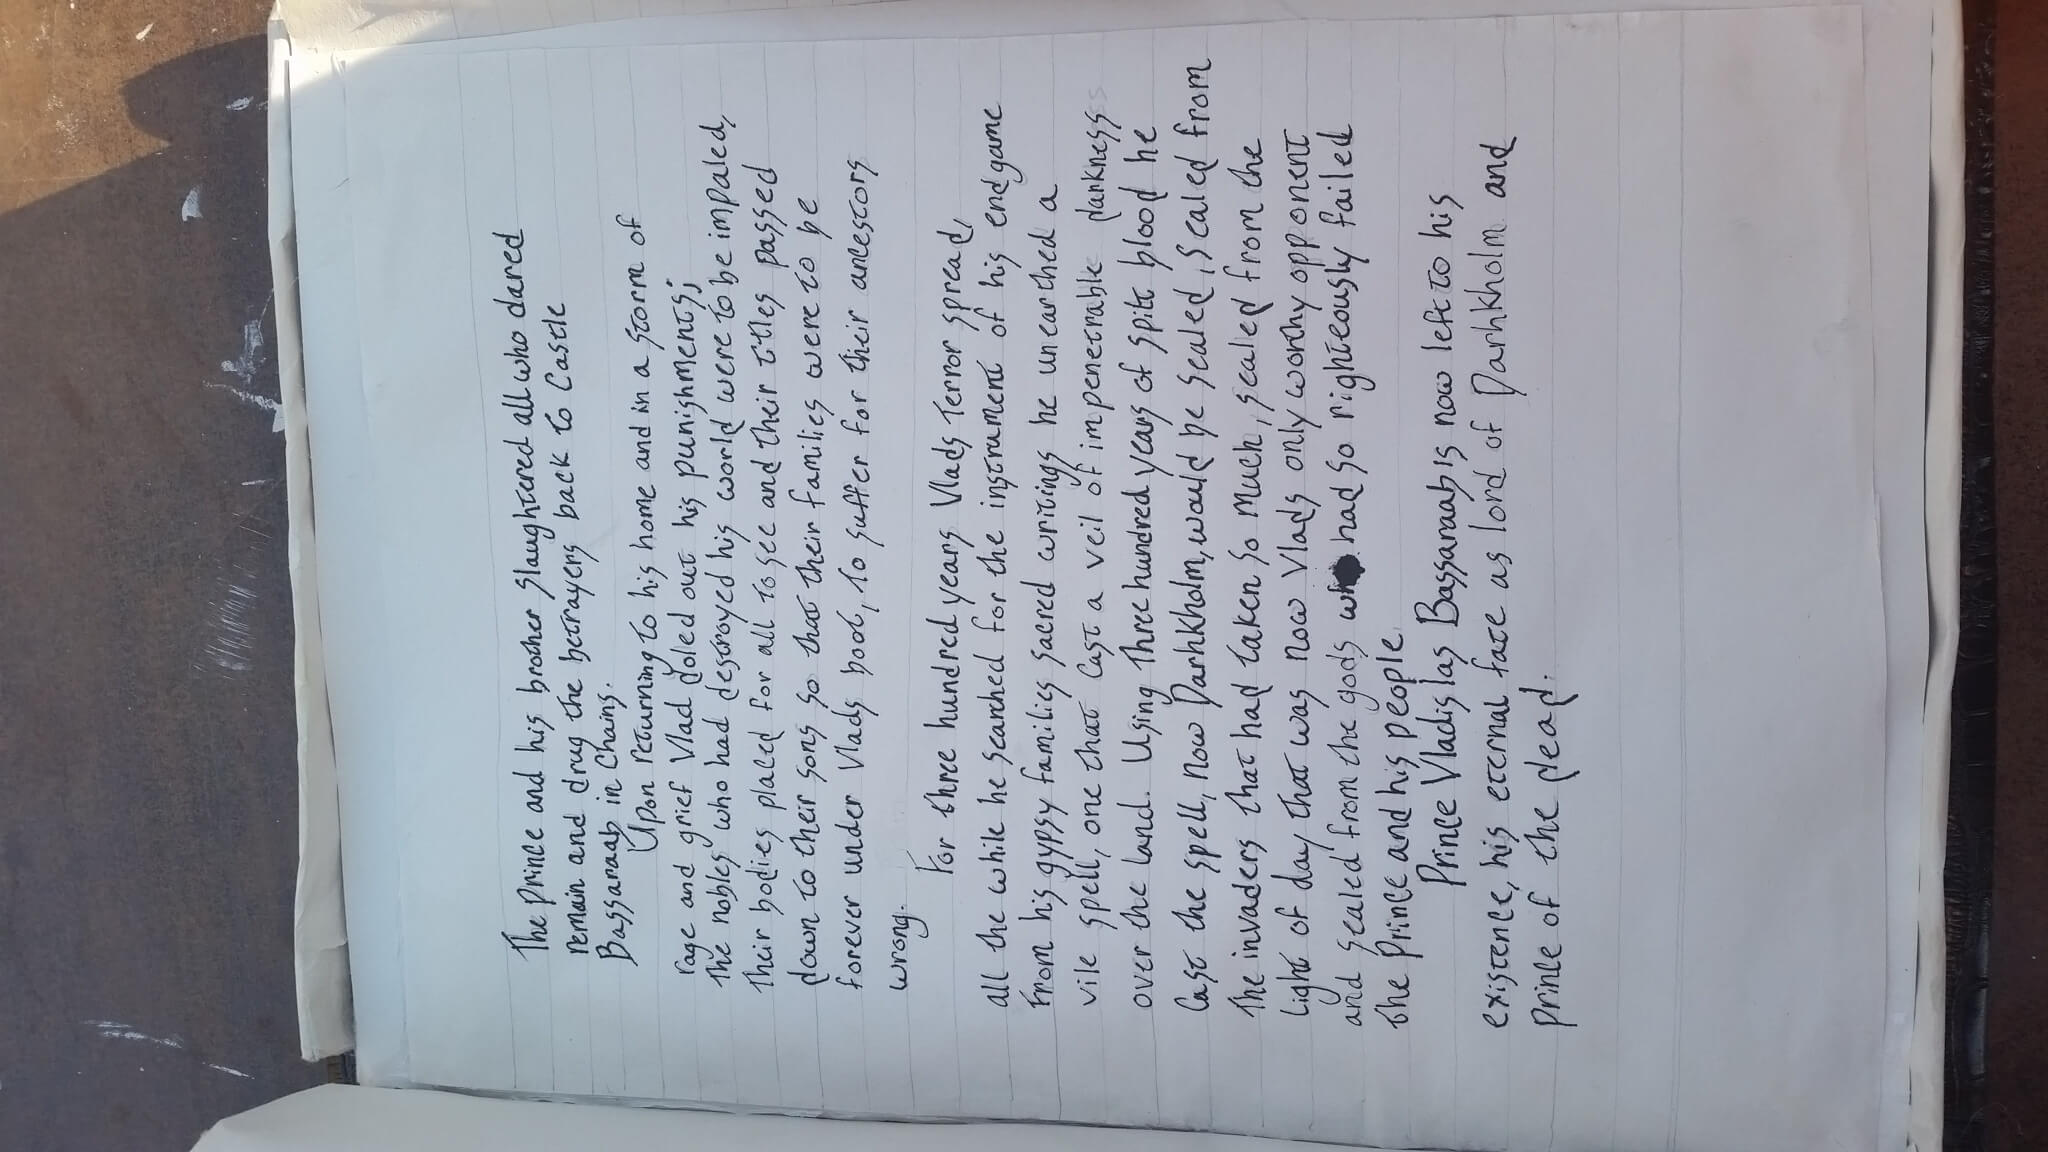 The Prince and his brother slaughtered all who dared
remain and drug the betrayers back to Castle
Bassaraab in Chains.
Upon returning to his home and in a storm of
rage and grief Vlad doled out his punishments;
The nobles who had destroyed his world were to be impaled,
Their bodies placed for all to see and their titles passed
down to their sons so that their families were to be
forever under Vlads boot, to suffer for their ancestors
wrong.
For three hundred years Vlads terror spread,
all the while he searched for the instrument of his endgame
From his gypsy families sacred writings he unearthed a
vile spell, one that cast a veil of impenetrable darkness
over the land. Using three hundred years of spilt blood he
Cast the spell, now Darhkholm, would be sealed, sealed from
The invaders that had taken so much, sealed from the
light of day that was now Vlads only worthy opponent
and sealed from the gods who had so righteously failed
the Prince and his people.
Prince Vladislas Bassaraab is now left to his
existence, his eternal fate as lord of Darhkholm and
Prince of the dead.